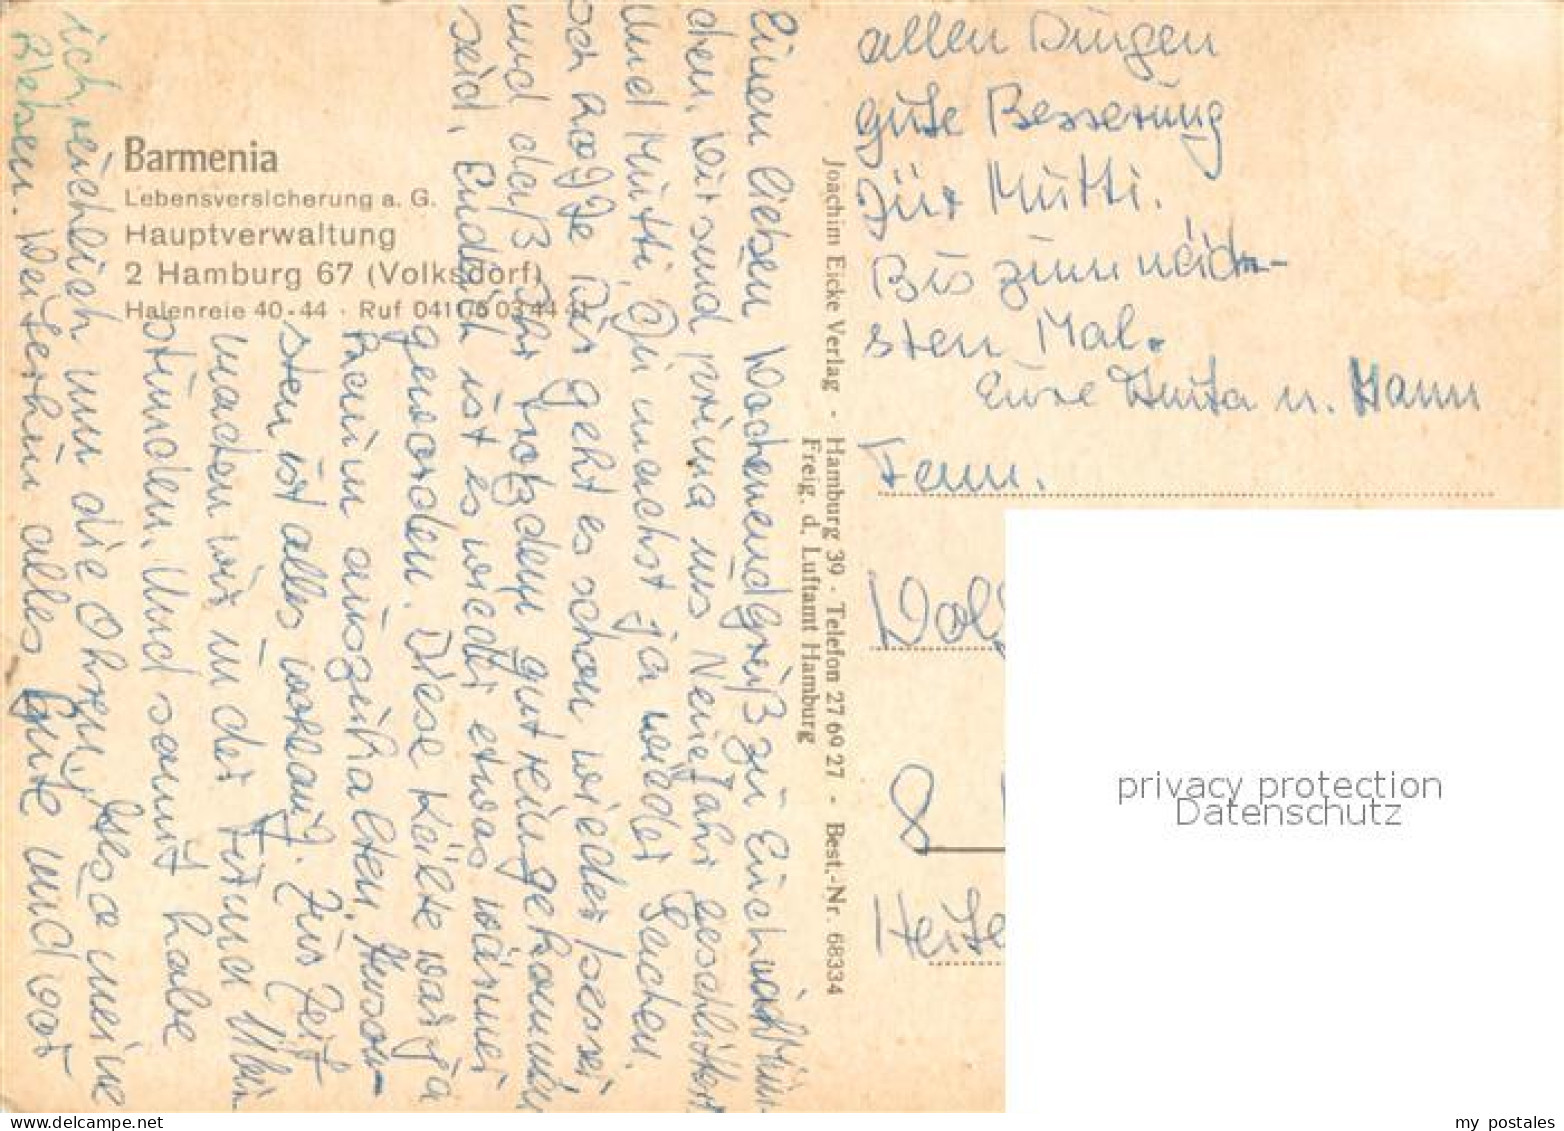 Barmenia
Lebensversicherung a. G.
Hauptverwaltung
2 Hamburg 67 (Volksdorf)
Halenreie 40-44 · Ruf 0411/6 03 44 41
Joachim Eicke Verlag · Hamburg 39 · Telefon 27 69 27 · Best.-Nr. 68334
Freig. d. Luftamt Hamburg
Einen lieben Wochenendgruß zu Euch nach Mün-
chen. Wir sind prima ins Neue Jahr geschlittert
Und Mutti, Du machst ja wieder Sachen.
och hoffe, Dir geht es schon wieder besser
und daß Ihr trotzdem gut reingekommen
seid. Endlich ist es wieder etwas wärmer
geworden. Diese Kälte war ja
kaum auszuhalten. Anson-
sten ist alles wohlauf. Zur Zeit
machen wir in der Firma Über-
stunden. Und somit habe
ich reichlich um die Ohren. Also meine
Lieben. Weiterhin alles Gute und vor
allen Dingen
gute Besserung
für Mutti.
Bis zum näch-
sten Mal.
Eure u. Hann
Fam.
Wolf
8
Heite
privacy protection
Datenschutz
my postales